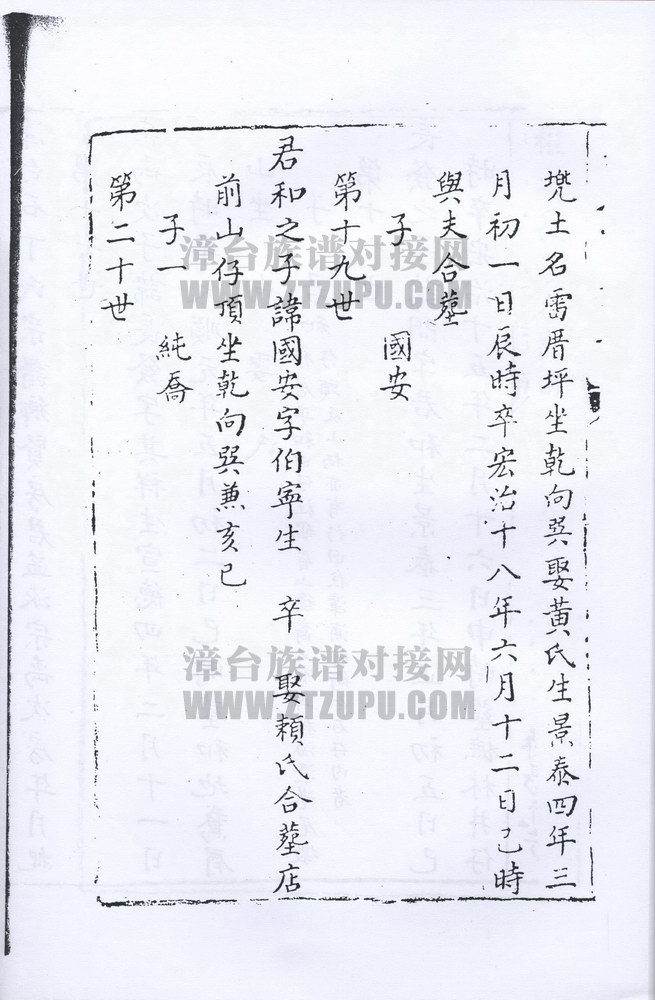 兠土名雷厝坪坐乾向巽娶黃氏生景泰四年三
月初一日辰時卒宏治十八年六月十二日己時
與夫合墓
子 國安
第十九世
君和之子諱國安字伯寧生 卒 娶賴氏合墓店
前山仔頂坐乾向巽兼亥己
子一 純喬
第二十世
漳台族谱对接网
WWW.ZTZUPU.COM
漳台族谱对接网
WWW.ZTZUPU.COM